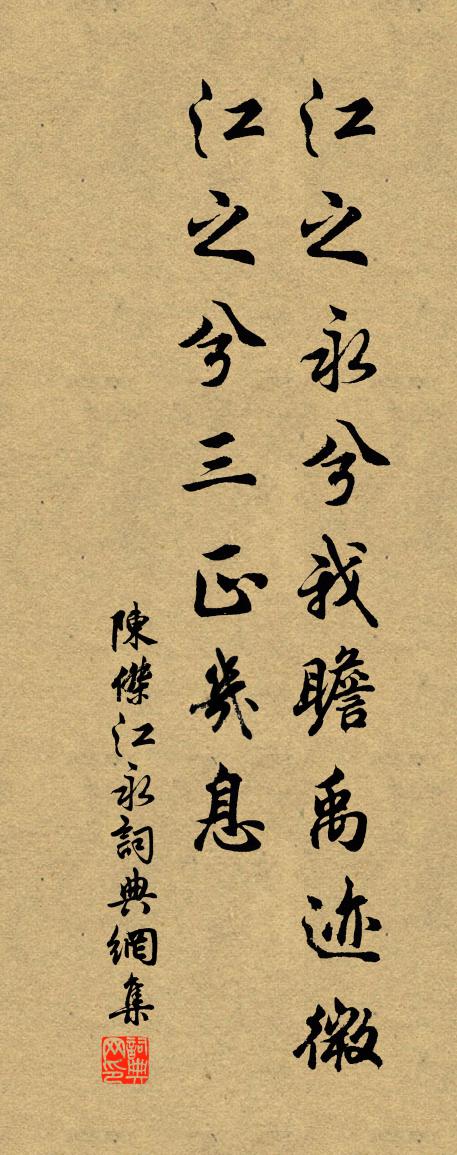 江之永兮我瞻禹迹微
江之兮三正幾息
陳傑江永詞典網集
詞典网印